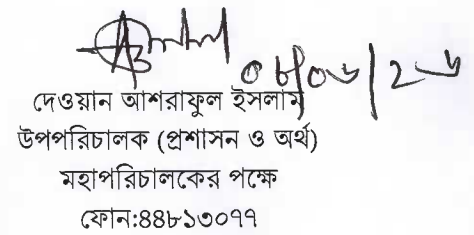 ০৮/০৬/২৬
দেওয়ান আশরাফুল ইসলাম
উপপরিচালক (প্রশাসন ও অর্থ)
মহাপরিচালকের পক্ষে
ফোন:৪৪৮১৩০৭৭